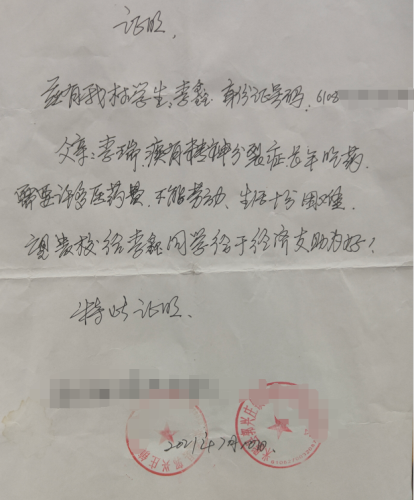 证明.
兹有我村学生:李鑫 身份证号码:6103
父亲:李瑞,患有精神分裂症长年吃药.
需要许多医药费,不能劳动、生活十分困难.
望贵校给李鑫同学给于经济支助为好!
特此证明.
2021年7月10日.